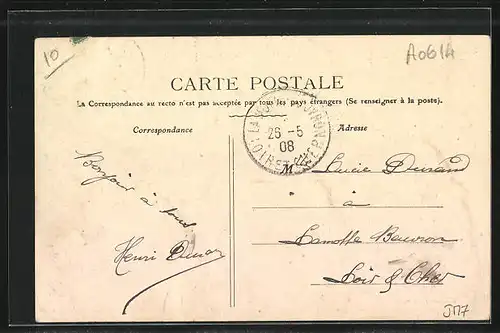 10
A061A
CARTE POSTALE
La Correspondance au recto n'est pas acceptée par tous les pays étrangers (Se renseigner à la poste).
Correspondance
Adresse
26 -5
08
LOIR ET CHER
Bonjour à tous
Henri
Mlle Lucie Durand
à
Lamotte Beuvron
Loir & Cher